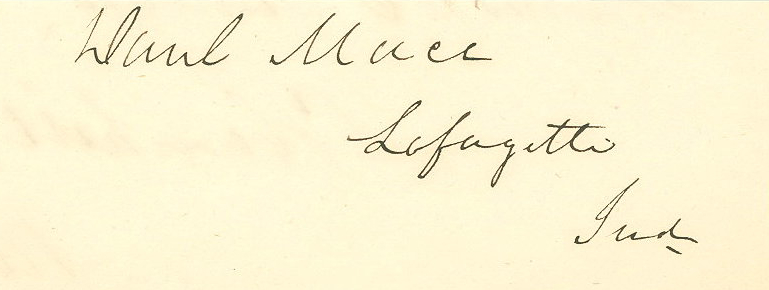 Danl Mace
Lafayette
Ind